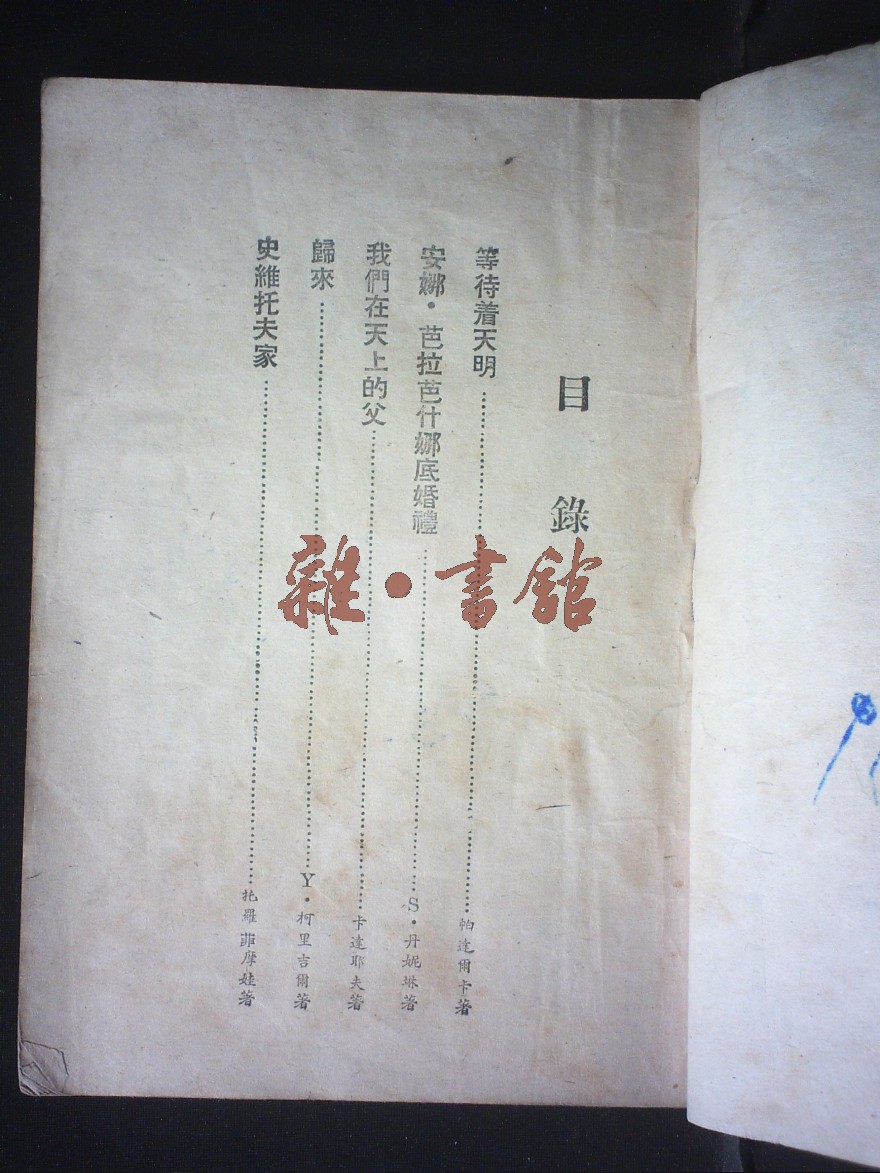 目錄
等待着天明…………帕達爾卡著
安娜·芭拉芭什娜底婚禮…………S·丹妮琳著
我們在天上的父…………卡達耶夫著
歸來…………Y·柯里吉爾著
史維托夫家…………托羅菲摩娃著
雜·書館